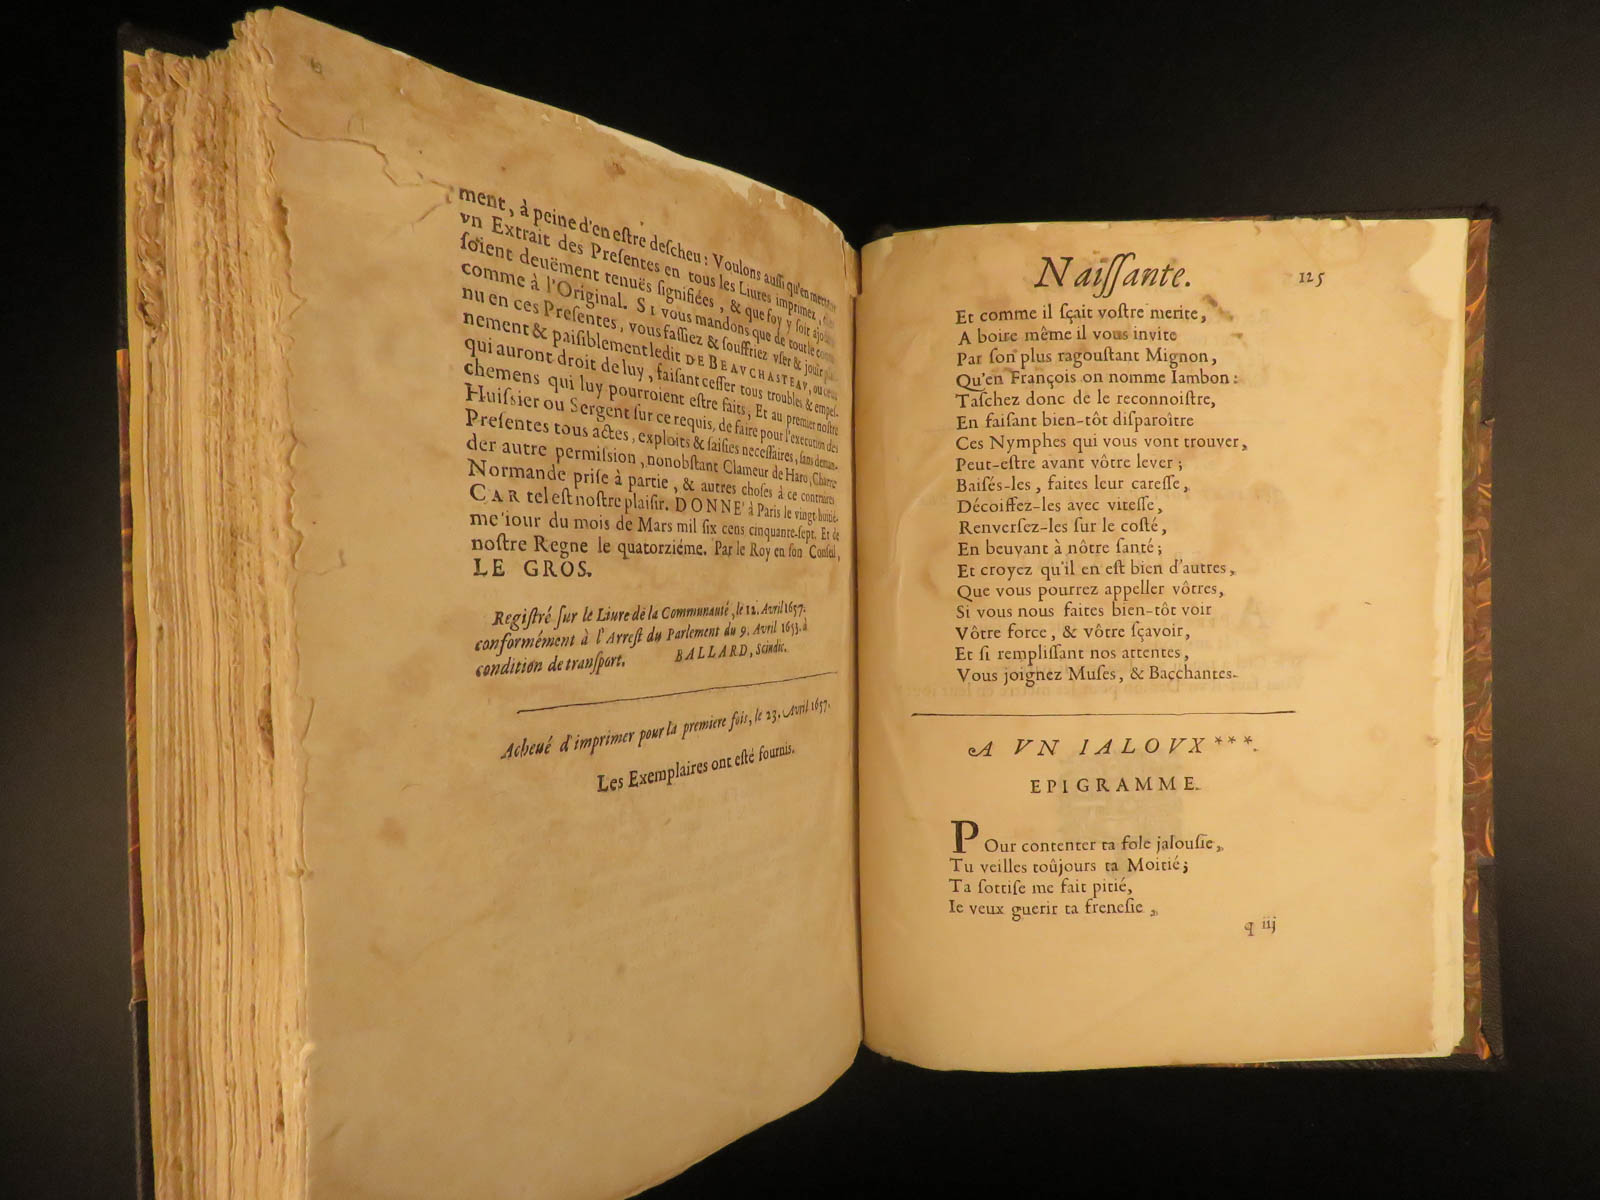 ment, à peine d'en eſtre deſcheu: Voulons auſſi qu'en mettant
vn Extrait des Preſentes en tous les Liures imprimez,
ſoient deuëment tenuës ſignifiées, & que foy y ſoit
comme à l'Original. SI vous mandons que de tout le
nu en ces Preſentes, vous faſſiez & ſouffriez vſer & joüir
nement & paiſiblement ledit DE BEAVCHASTEAV, ou ceux
qui auront droit de luy, faiſant ceſſer tous troubles & empeſ-
chemens qui luy pourroient eſtre faits, Et au premier noſtre
Huiſſier ou Sergent ſur ce requis, de faire pour l'execution des
Preſentes tous actes, exploits & ſaiſies neceſſaires, ſans deman-
der autre permiſsion, nonobſtant Clameur de Haro, Chartre
Normande priſe à partie, & autres choſes à ce contraires
CAR tel eſt noſtre plaiſir. DONNE' à Paris le vingt-huitié-
me iour du mois de Mars mil ſix cens cinquante-ſept. Et de
noſtre Regne le quatorziéme. Par le Roy en ſon Conſeil,
LE GROS.
Regiſtré ſur le Liure de la Communauté, le 12. Avril 1657.
conformément à l'Arreſt du Parlement du 9. Avril 1653. à
condition de tranſport. BALLARD, Scindic.
Acheué d'imprimer pour la premiere fois, le 23. Avril 1657.
Les Exemplaires ont eſté fournis.
Naiſſante. 125
Et comme il ſçait voſtre merite,
A boire même il vous invite
Par ſon plus ragouſtant Mignon,
Qu'en François on nomme Iambon:
Taſchez donc de le reconnoiſtre,
En faiſant bien-tôt diſparoître
Ces Nymphes qui vous vont trouver,
Peut-eſtre avant vôtre lever;
Baiſés-les, faites leur careſſe,
Décoiffez-les avec viteſſe,
Renverſez-les ſur le coſté,
En beuvant à nôtre ſanté;
Et croyez qu'il en eſt bien d'autres,
Que vous pourrez appeller vôtres,
Si vous nous faites bien-tôt voir
Vôtre force, & vôtre ſçavoir,
Et ſi rempliſſant nos attentes,
Vous joignez Muſes, & Bacchantes.
A VN IALOVX ***.
EPIGRAMME.
POur contenter ta fole jalouſie,
Tu veilles toûjours ta Moitié;
Ta ſottiſe me fait pitié,
Ie veux guerir ta freneſie,
q iij